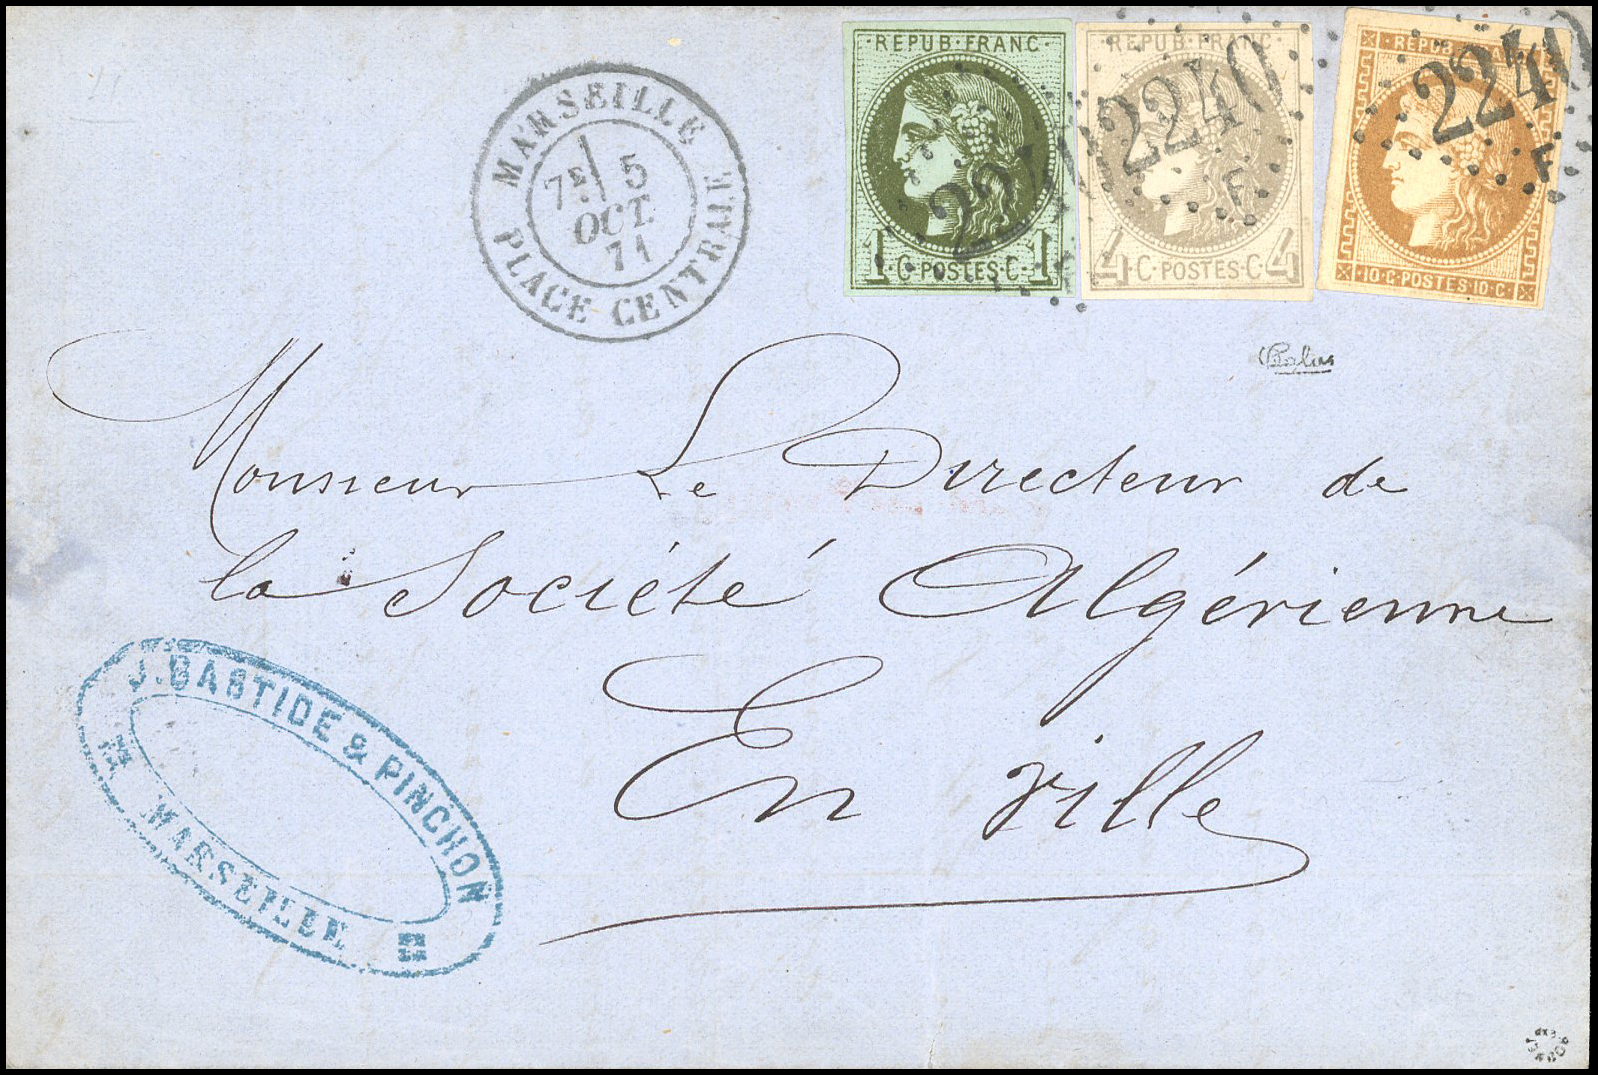 REPUB·FRANC·
1 C·POSTES·C· 1
2240
REPUB·FRANC·
4 C·POSTES·C· 4
2240
F
REPUB·FRANC·
10·C·POSTES·10·C·
2240
F
MARSEILLE
7E 5
OCT.
71
PLACE CENTRALE
Monsieur Le Directeur de
la Société Algérienne
En ville
J. BASTIDE & PINCHON
MARSEILLE